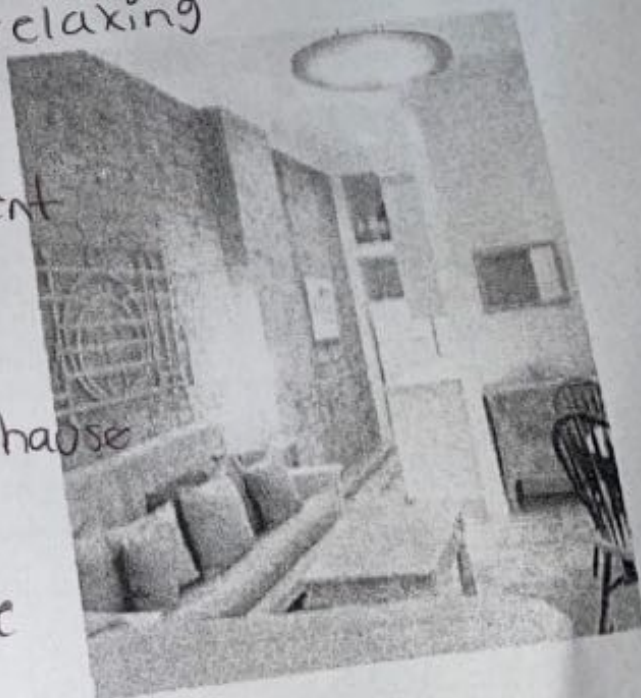 elaxing
nt
hause